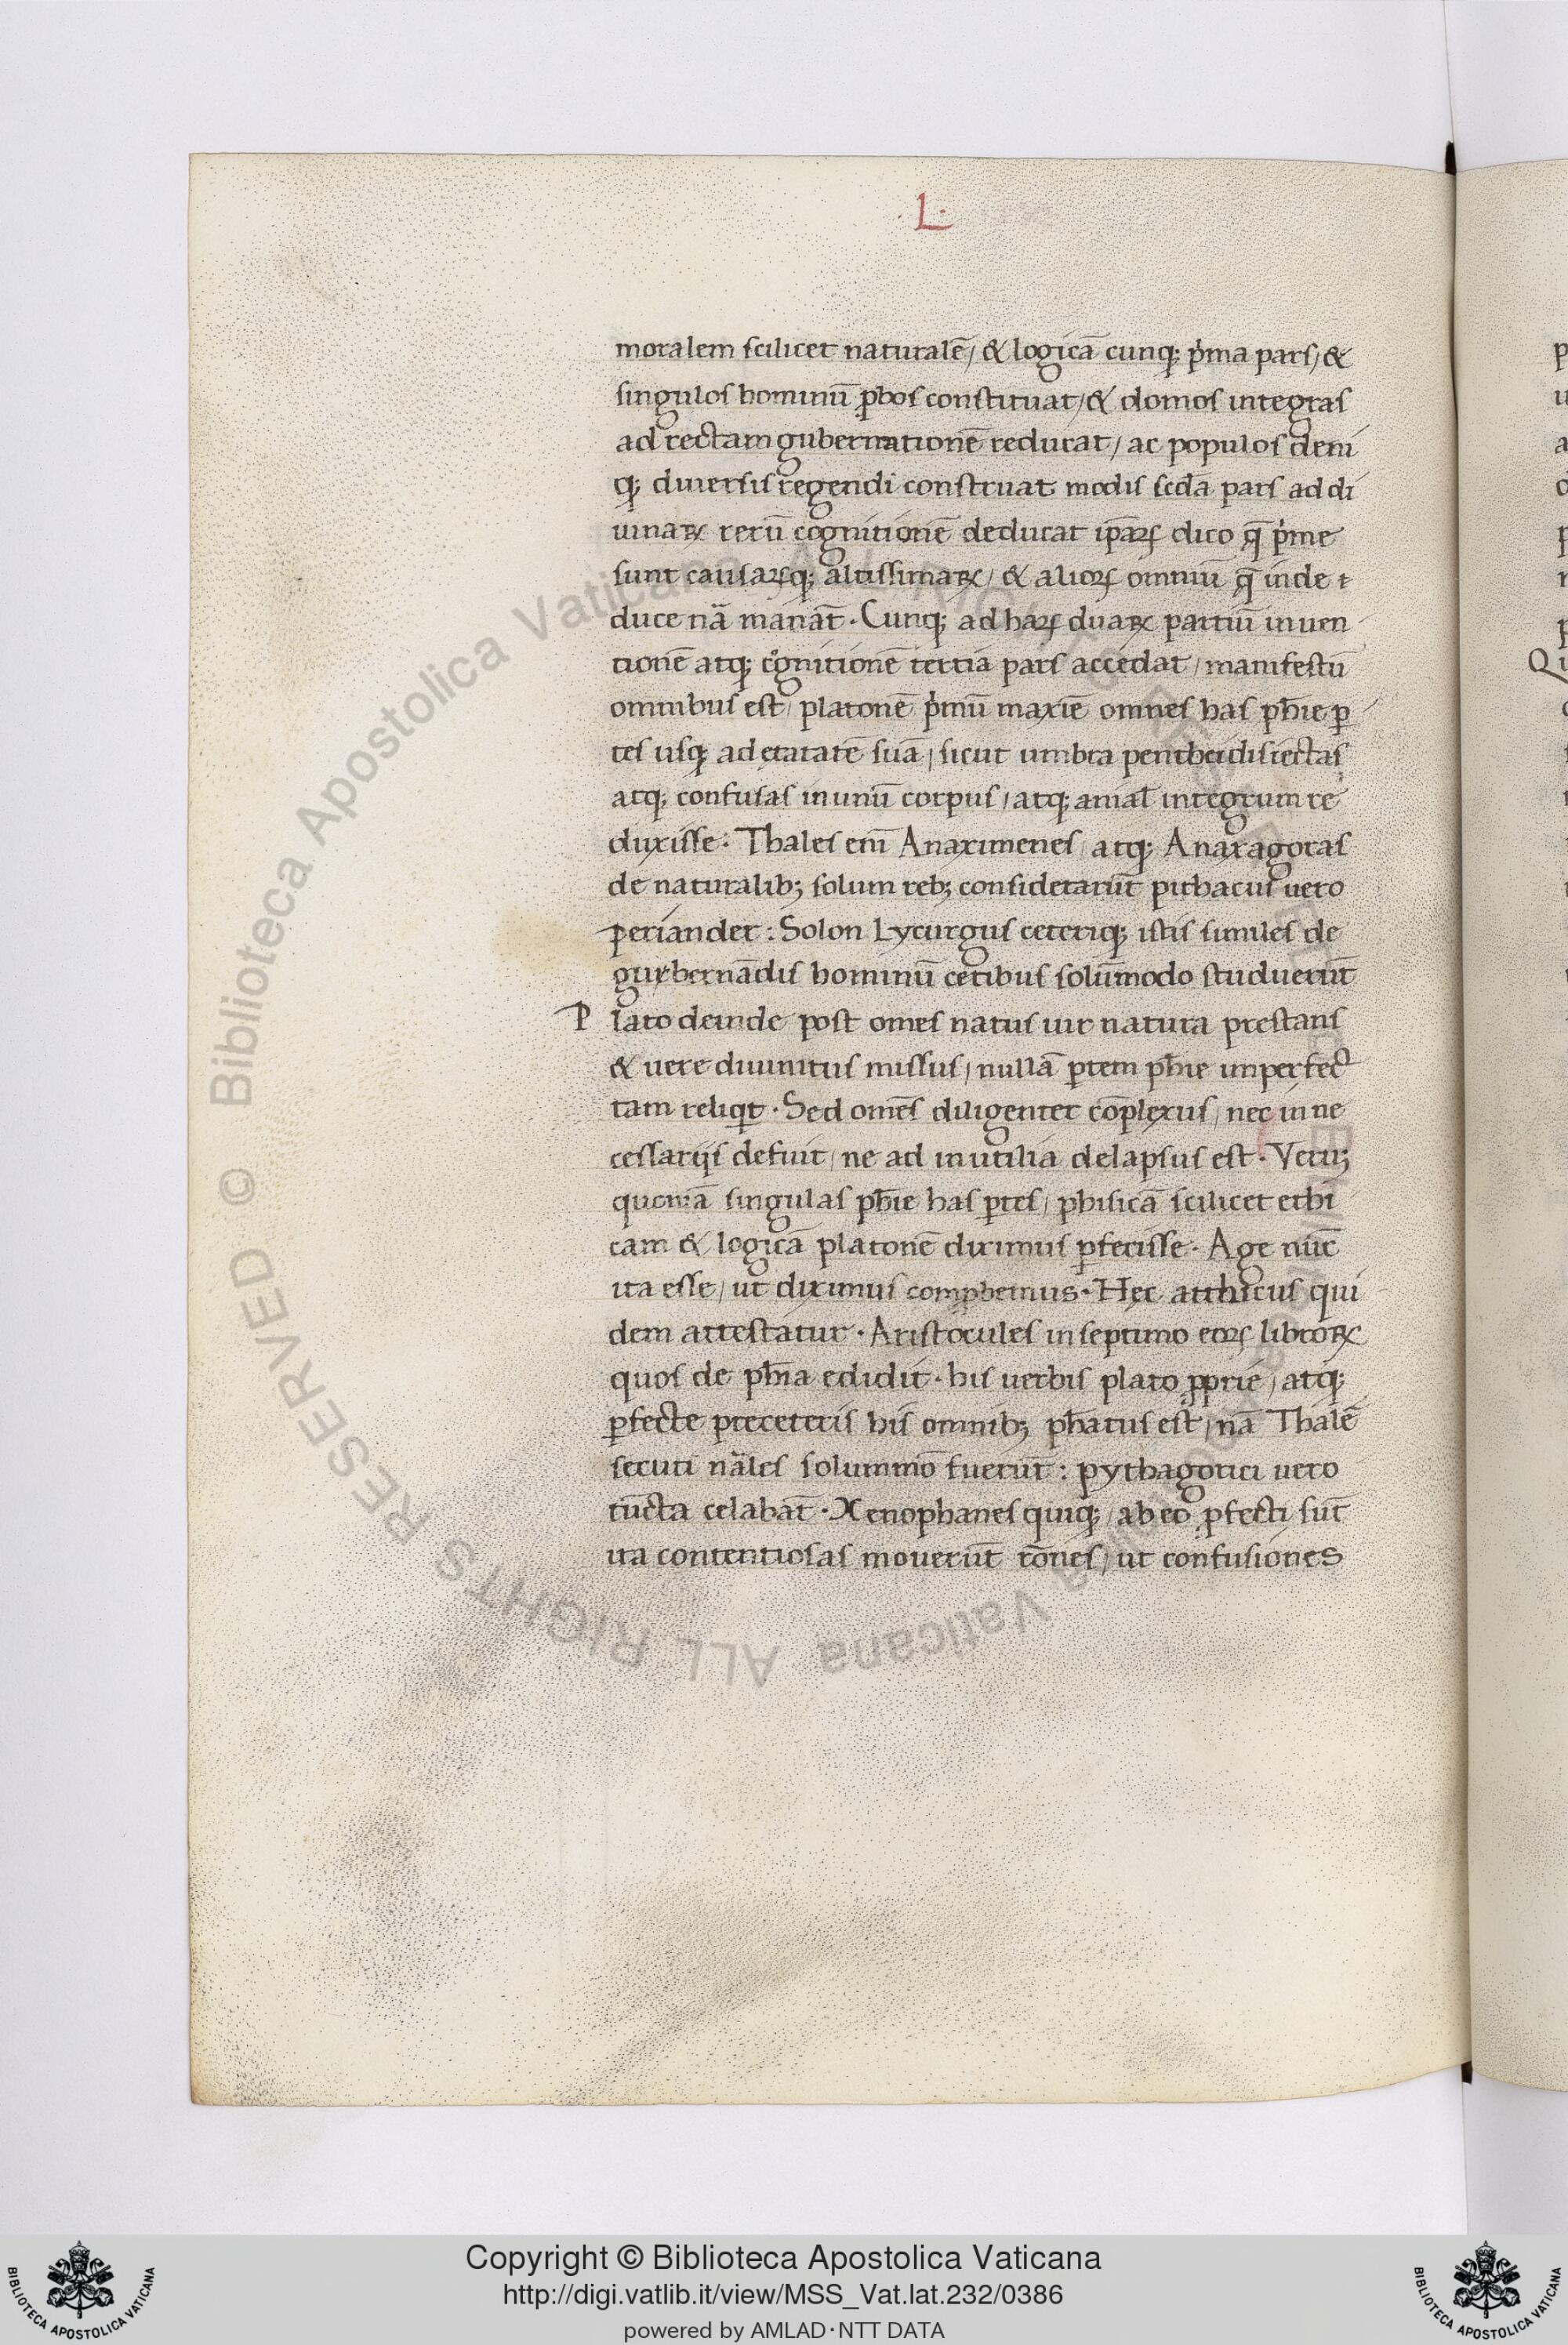 ·L·
moralem scilicet naturalē/ & logicā cunq; p̍ma pars/ &
singulos hominū p̱bos constituat/ & domos integras
ad rectam gubernationē reducat/ ac populos deni
q; diuersis regendi construat modis scd̄a pars ad di
uinaꝝ rerū cognitionē deducat ip̄aꝝ dico q̄ p̍me
sunt causaꝝq; altissimaꝝ/ & alioꝝ omniū q̄ inde
duce nā manāt · Cunq; ad haꝝ duaꝝ partiū inuen
tionē atq; cognitionē tertia pars accedat/ manifestū
omnibus est/ platonē p̍mū maxīe omnes has ph̄ie ꝑ
tes usq; ad etatatē suā/ sicut umbra penthei disiectas
atq; confusas in unū corpus/ atq; anial̄ integrum re
duxisse · Thales em̄ Anaximenes atq; Anaxagoras
de naturalib; solum reb; considerarūt pithacus uero
periander : Solon Lycurgus ceteriq; istis similes de
gurbernādis hominū cetibus solūmodo studuerūt
Plato deinde post omēs natus uir natura prestans
& uere diuinitus missus/ nullā ꝑtem ph̄ie imperfec
tam reliqt · Sed omēs diligenter cōplexus/ nec in ne
cessarijs defuit/ ne ad inutilia delapsus est · Veruꝫ
quoniā singulas ph̄ie has ꝑtes/ phisicā scilicet ethi
cam & logicā platonē diximus ꝑfecisse · Age nūc
ita esse/ ut diximus comꝓbemus · Hec atthicus qui
dem attestatur · Aristocules in septimo eoꝝ libroꝝ
quos de ph̄ia edidit · his uerbis plato ꝓprie/ atq;
ꝑfecte preceteris his omnib; ph̄atus est/ nā Thalē
secuti nāles solummō fuerūt : pythagorici uero
cūcta celabāt · Xenophanes quiq; ab eo ꝓfecti sūt
ita contentiosas mouerūt rōnes/ ut confusiones
Copyright © Biblioteca Apostolica Vaticana
http://digi.vatlib.it/view/MSS_Vat.lat.232/0386
powered by AMLAD·NTT DATA
BIBLIOTECA APOSTOLICA VATICANA
BIBLIOTECA APOSTOLICA VATICANA